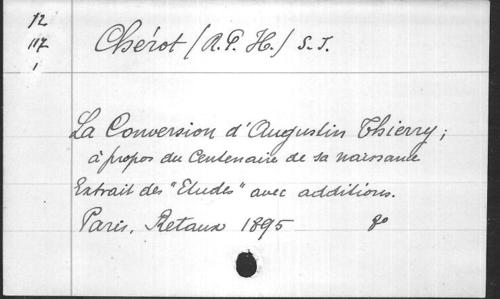 12
117
1
Chérot (R. P. H.) S. J.
La Conversion d'Augustin Thierry;
à propos du Centenaire de sa naissance
Extrait des "Etudes" avec additions.
Paris, Retaux 1895 8º